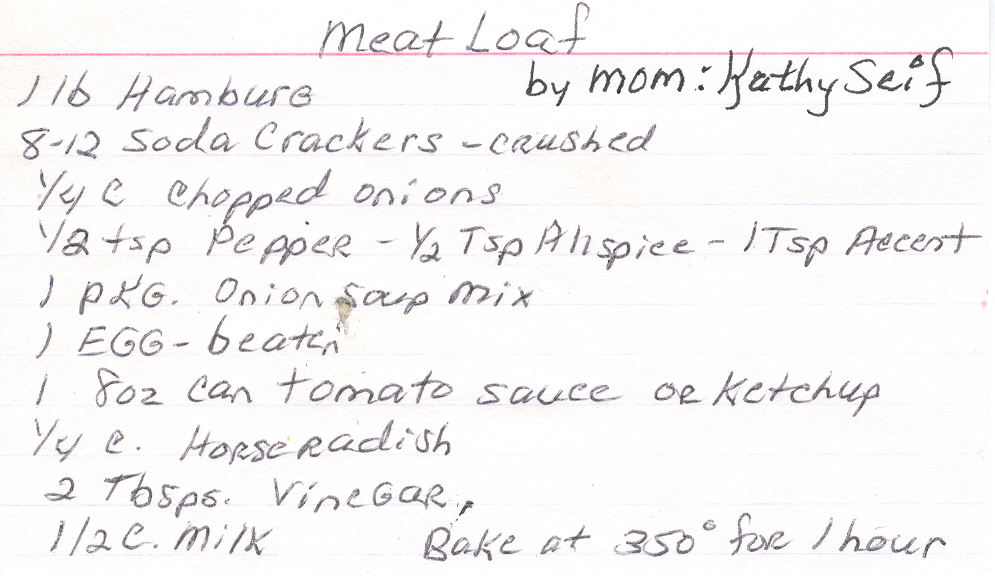 Meat Loaf
by mom: Kathy Seif
1 lb Hamburg
8-12 Soda Crackers - crushed
1/4 C Chopped onions
1/2 tsp Pepper - 1/2 Tsp Allspice - 1 Tsp Accent
1 PKG. Onion Soup mix
1 EGG - beaten
1 8oz can tomato sauce or Ketchup
1/4 C. Horseradish
2 Tbsps. Vinegar,
1/2 C. Milk Bake at 350° for 1 hour